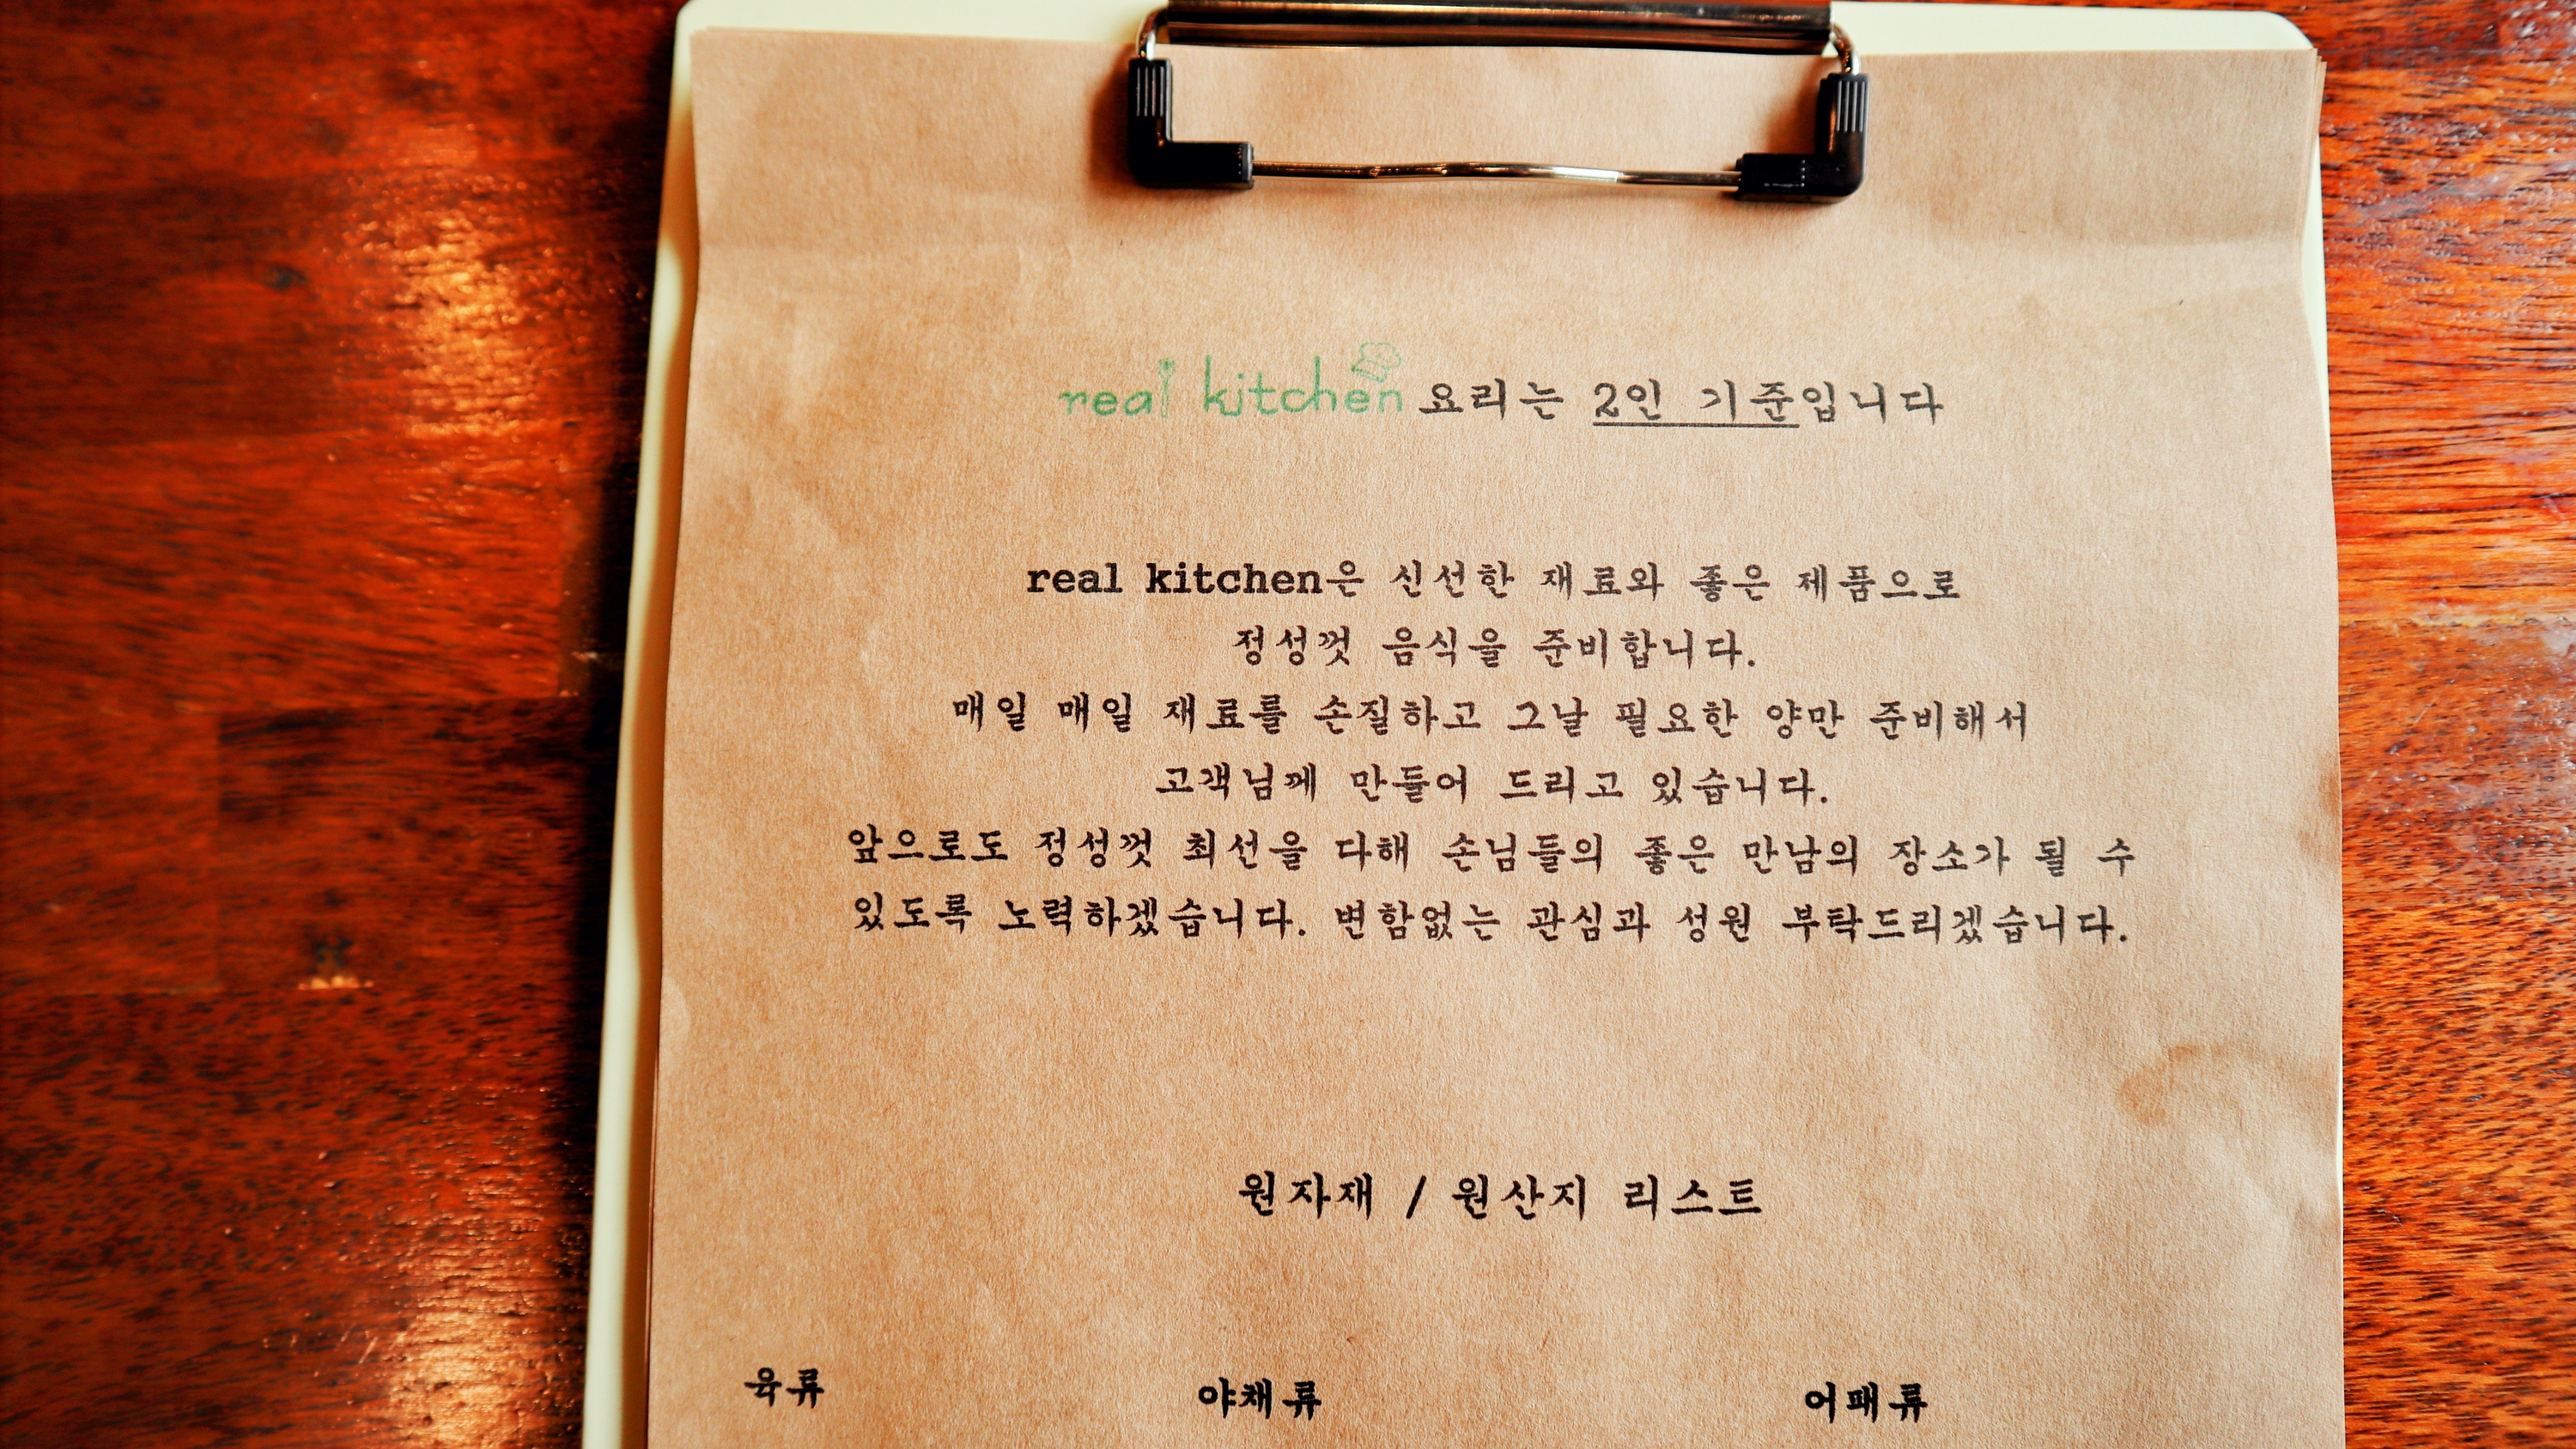 real kitchen 요리는 2인 기준입니다
real kitchen은 신선한 재료와 좋은 제품으로
정성껏 음식을 준비합니다.
매일 매일 재료를 손질하고 그날 필요한 양만 준비해서
고객님께 만들어 드리고 있습니다.
앞으로도 정성껏 최선을 다해 손님들의 좋은 만남의 장소가 될 수
있도록 노력하겠습니다. 변함없는 관심과 성원 부탁드리겠습니다.
원자재 / 원산지 리스트
육류 야채류 어패류